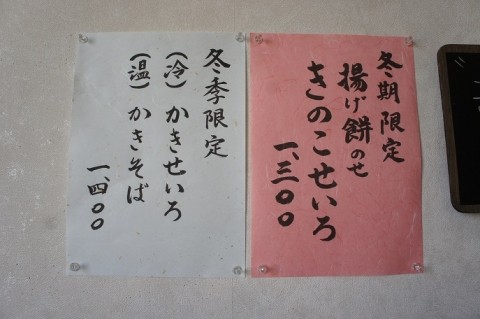 冬期限定
揚げ餅のせ
きのこせいろ
一、三〇〇
冬季限定
(冷)かきせいろ
(温)かきそば
一、四〇〇